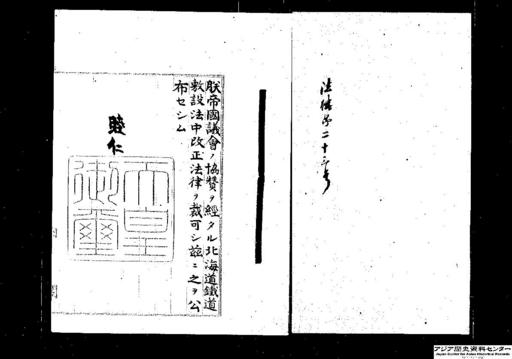 法律第二十三号
朕帝國議會ノ協賛ヲ經タル北海道鐵道
敷設法中改正法律ヲ裁可シ茲ニ之ヲ公
布セシム
睦仁
天皇御璽
アジア歴史資料センター
Japan Center for Asian Historical Records